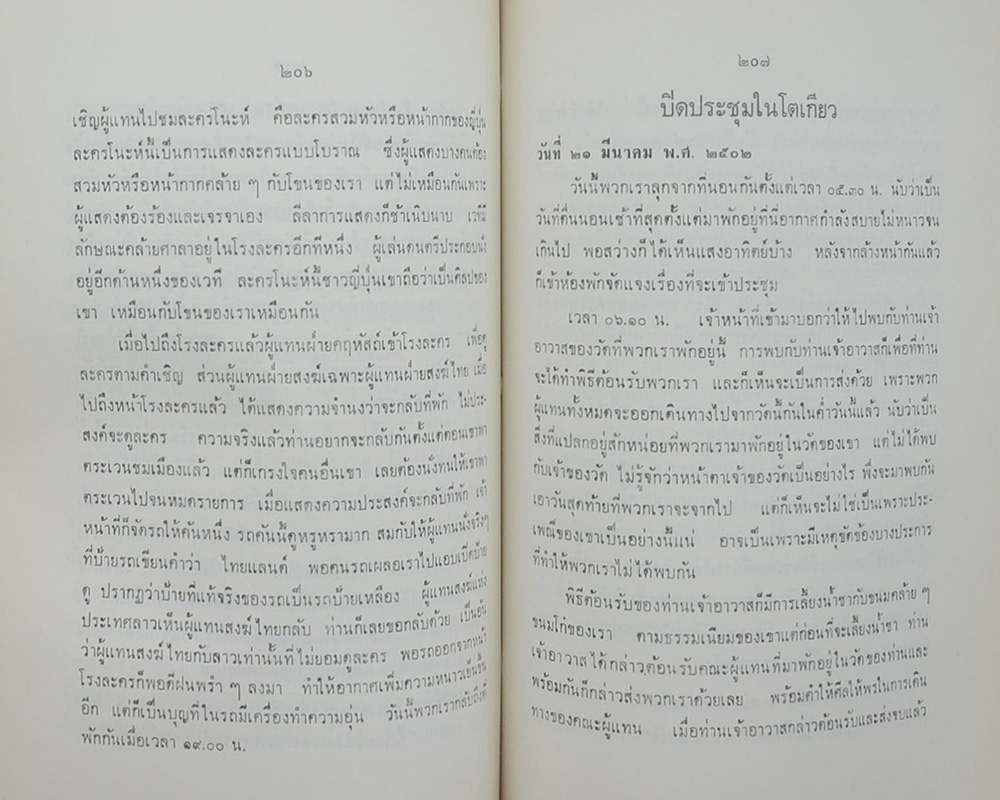 ๒๐๖
เชิญผู้แทนไปชมละครโนะห์ คือละครสวมหัวหรือหน้ากากของญี่ปุ่น
ละครโนะห์นี้เป็นการแสดงละครแบบโบราณ ซึ่งผู้แสดงบางคนต้อง
สวมหัวหรือหน้ากากคล้าย ๆ กับโขนของเรา แต่ไม่เหมือนกันเพราะ
ผู้แสดงต้องร้องและเจรจาเอง ลีลาการแสดงก็ช้าเนิบนาบ เวทีมี
ลักษณะคล้ายศาลาอยู่ในโรงละครอีกทีหนึ่ง ผู้เล่นดนตรีประกอบนั่ง
อยู่อีกด้านหนึ่งของเวที ละครโนะห์นี้ชาวญี่ปุ่นเขาถือว่าเป็นศิลปของ
เขา เหมือนกับโขนของเราเหมือนกัน
เมื่อไปถึงโรงละครแล้วผู้แทนฝ่ายคฤหัสถ์เข้าโรงละคร เพื่อดู
ละครตามคำเชิญ ส่วนผู้แทนฝ่ายสงฆ์เฉพาะผู้แทนฝ่ายสงฆ์ไทย เมื่อ
ไปถึงหน้าโรงละครแล้ว ได้แสดงความจำนงว่าจะกลับที่พัก ไม่ประ-
สงค์จะดูละคร ความจริงแล้วท่านอยากจะกลับกันตั้งแต่ตอนเขาพา
ตระเวนชมเมืองแล้ว แต่ก็เกรงใจคนอื่นเขา เลยต้องนั่งทนให้เขาพา
ตระเวนไปจนหมดรายการ เมื่อแสดงความประสงค์จะกลับที่พัก เจ้า
หน้าที่ก็จัดรถให้คันหนึ่ง รถคันนี้ดูหรูหรามาก สมกับให้ผู้แทนนั่งจริงๆ
ที่ป้ายรถเขียนคำว่า ไทยแลนด์ พอคนรถเผลอเราไปแอบเปิดป้าย
ดู ปรากฏว่าป้ายที่แท้จริงของรถเป็นรถป้ายเหลือง ผู้แทนสงฆ์แห่ง
ประเทศลาวเห็นผู้แทนสงฆ์ไทยกลับ ท่านก็เลยขอกลับด้วย เป็นอัน
ว่าผู้แทนสงฆ์ไทยกับลาวเท่านั้นที่ไม่ยอมดูละคร พอรถออกจากหน้า
โรงละครก็พอดีฝนพรำ ๆ ลงมา ทำให้อากาศเพิ่มความหนาวเย็นขึ้น
อีก แต่ก็เป็นบุญที่ในรถมีเครื่องทำความอุ่น วันนี้พวกเรากลับถึงที่
พักกันเมื่อเวลา ๑๙.๐๐ น.
๒๐๗
ปิดประชุมในโตเกียว
วันที่ ๒๑ มีนาคม พ.ศ. ๒๕๐๒
วันนี้พวกเราลุกจากที่นอนกันตั้งแต่เวลา ๐๕.๓๐ น. นับว่าเป็น
วันที่ตื่นนอนเช้าที่สุดตั้งแต่มาพักอยู่ที่นี่อากาศกำลังสบายไม่หนาวจน
เกินไป พอสว่างก็ได้เห็นแสงอาทิตย์บ้าง หลังจากล้างหน้ากันแล้ว
ก็เข้าห้องพักจัดแจงเรื่องที่จะเข้าประชุม
เวลา ๐๖.๑๐ น. เจ้าหน้าที่เข้ามาบอกว่าให้ไปพบกับท่านเจ้า
อาวาสของวัดที่พวกเราพักอยู่นี้ การพบกับท่านเจ้าอาวาสก็เพื่อที่ท่าน
จะได้ทำพิธีต้อนรับพวกเรา และก็เห็นจะเป็นการส่งด้วย เพราะพวก
ผู้แทนทั้งหมดจะออกเดินทางไปจากวัดนี้กันในค่ำวันนี้แล้ว นับว่าเป็น
สิ่งที่แปลกอยู่สักหน่อยที่พวกเรามาพักอยู่ในวัดของเขา แต่ไม่ได้พบ
กับเจ้าของวัด ไม่รู้จักว่าหน้าตาเจ้าของวัดเป็นอย่างไร พึ่งจะมาพบกัน
เอาวันสุดท้ายที่พวกเราจะจากไป แต่ก็เห็นจะไม่ใช่เป็นเพราะประ-
เพณีของเขาเป็นอย่างนี้แน่ อาจเป็นเพราะมีเหตุขัดข้องบางประการ
ที่ทำให้พวกเราไม่ได้พบกัน
พิธีต้อนรับของท่านเจ้าอาวาสก็มีการเลี้ยงน้ำชากับขนมคล้าย ๆ
ขนมโก๋ของเรา ตามธรรมเนียมของเขาแต่ก่อนที่จะเลี้ยงน้ำชา ท่าน
เจ้าอาวาสได้กล่าวต้อนรับคณะผู้แทนที่มาพักอยู่ในวัดของท่านและ
พร้อมกันก็กล่าวส่งพวกเราด้วยเลย พร้อมคำให้ศีลให้พรในการเดิน
ทางของคณะผู้แทน เมื่อท่านเจ้าอาวาสกล่าวต้อนรับและส่งจบแล้ว